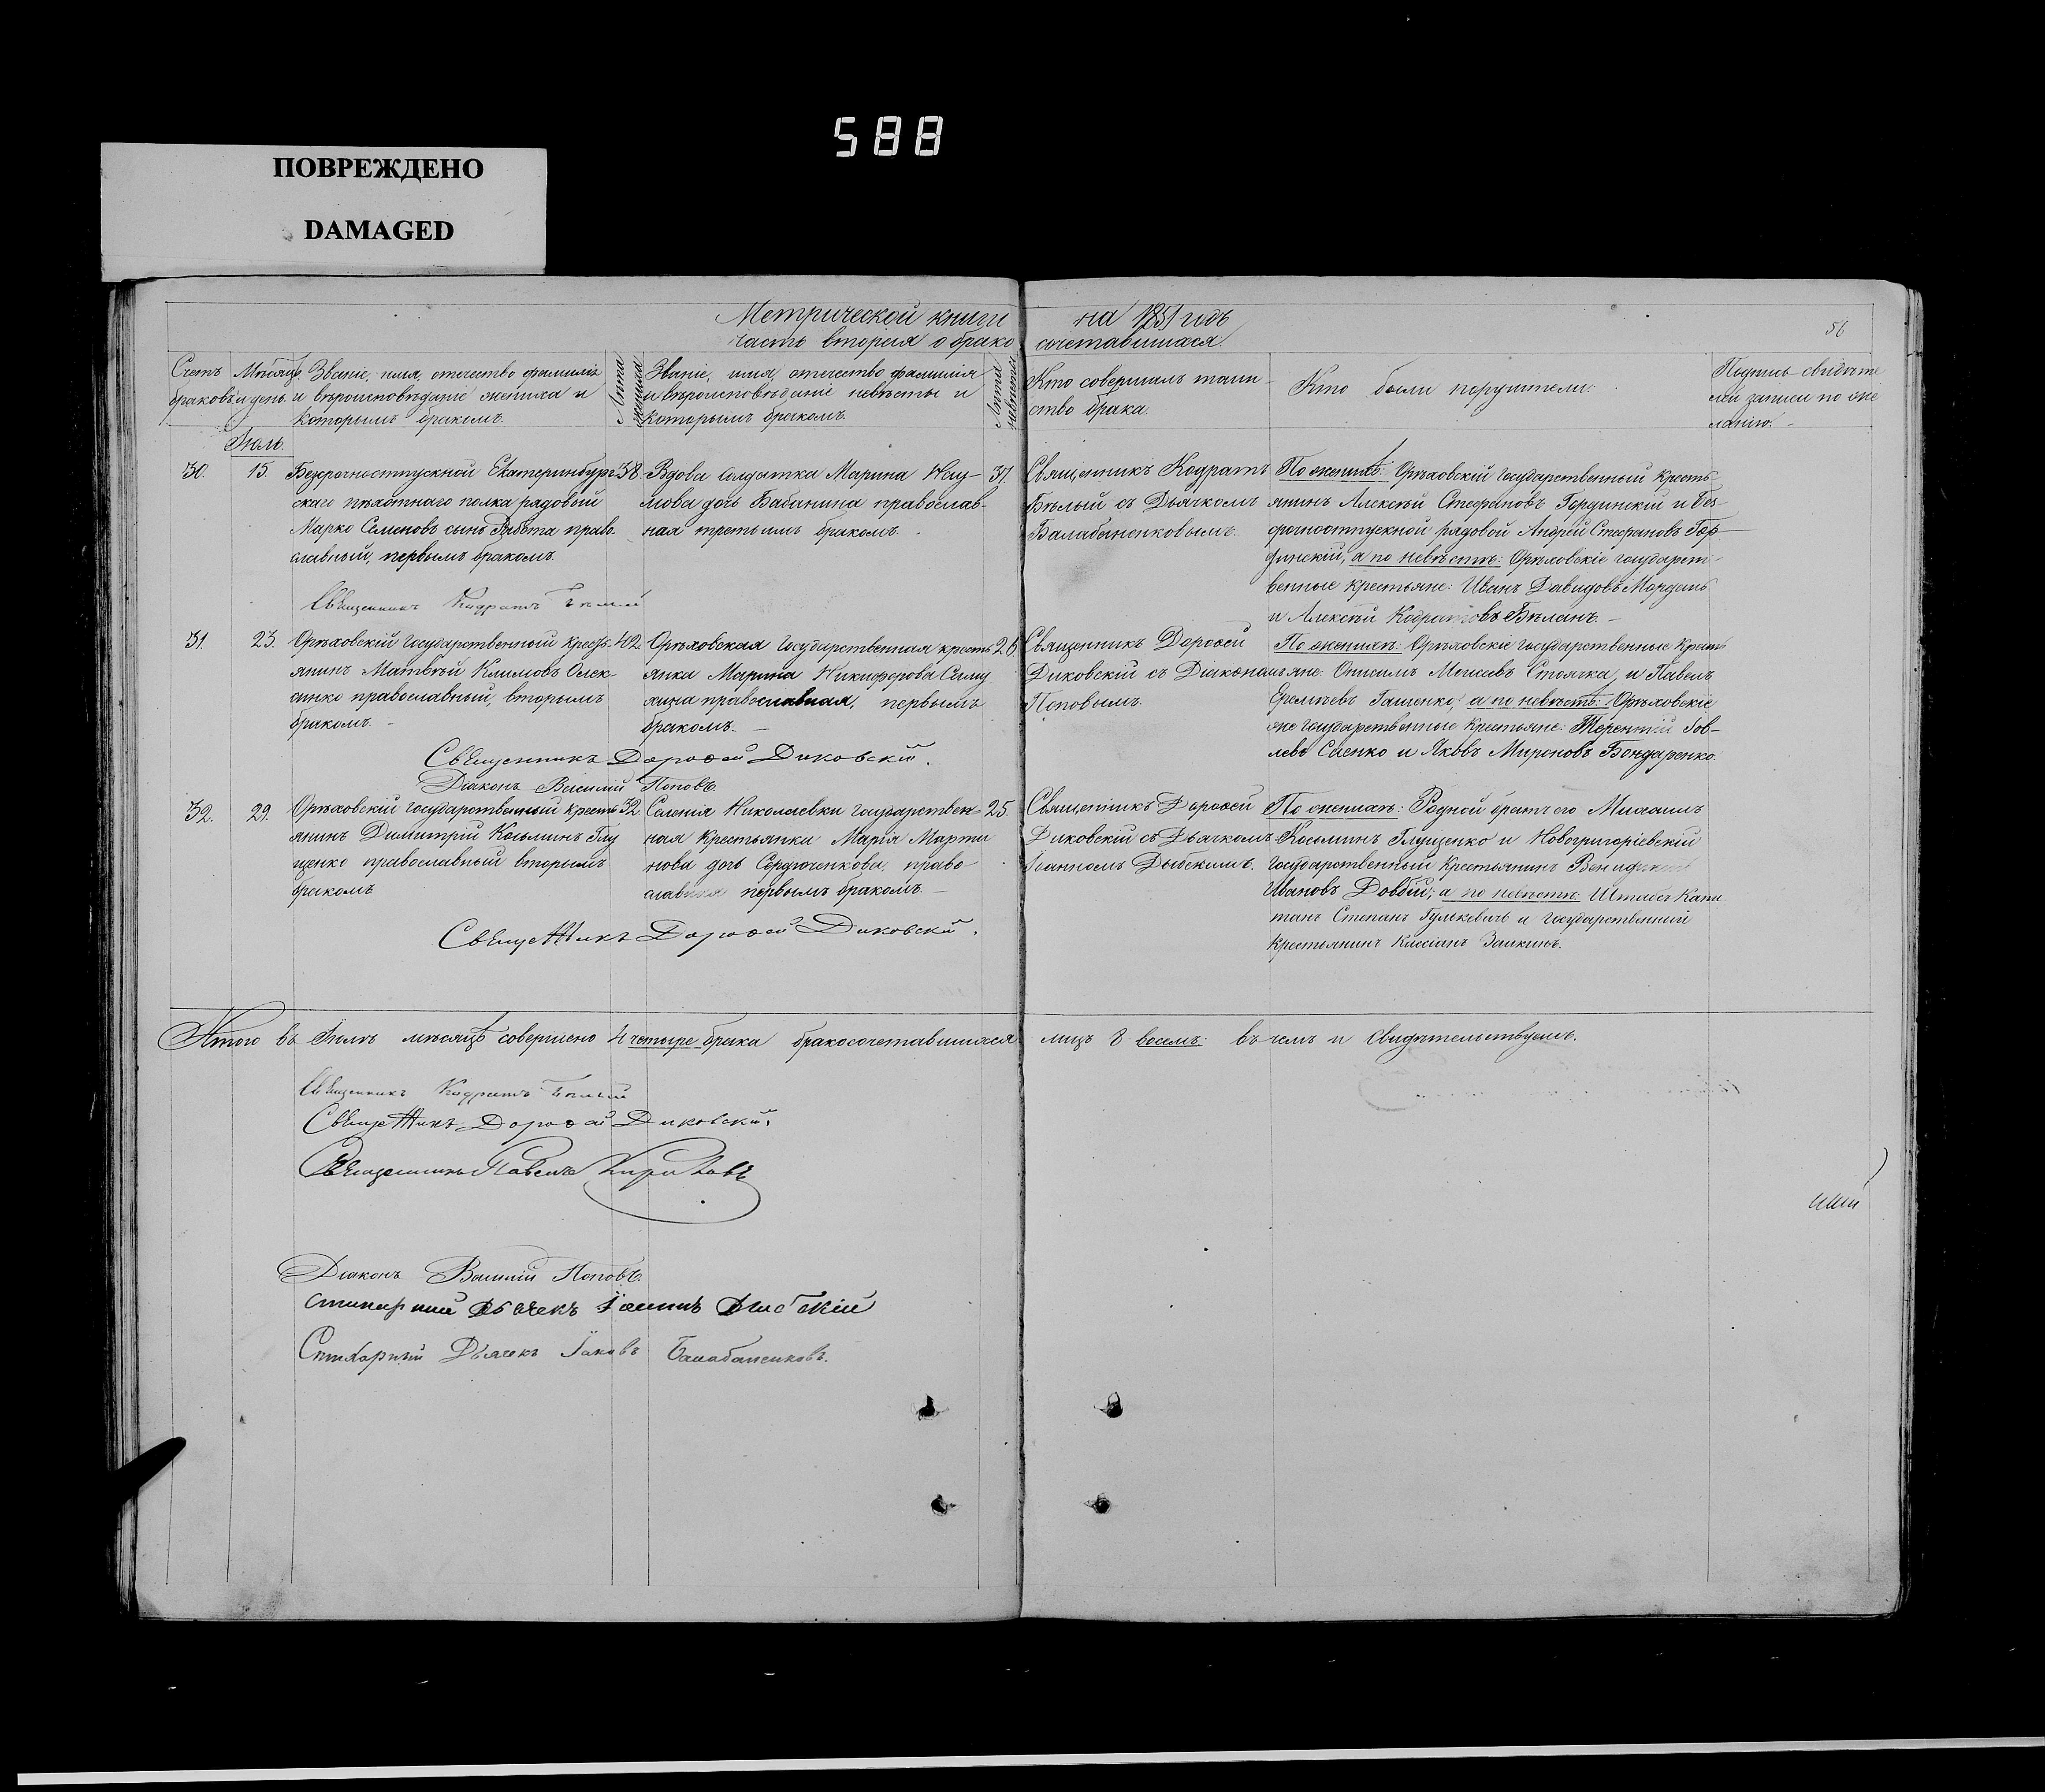 588
ПОВРЕЖДЕНО
DAMAGED
Метрической книги на 1851 годъ
56
часть вторая о брако сочетавшихся.
Счетъ браковъ
Мѣсяцъ и день
Званіе, имя, отечество фамилія
и вѣроисповѣданіе жениха и
которымъ бракомъ.
Лѣта жениха
Званіе, имя, отечество фамилія
и вѣроисповѣданіе невѣсты и
которымъ бракомъ.
Лѣта невѣсты
Кто совершалъ таин-
ство брака.
Кто были поручители.
Подпись свидѣте
лей записи по же
ланію. -
Іюль.
30.
15.
Безсрочноотпускной Екатеринбург-
скаго пѣхотнаго полка рядовый
Марко Семеновъ сынъ Рябота право
славный, первымъ бракомъ.
38.
Вдова солдатка Марина Нау-
мова дочь Бабанина православ-
ная третьимъ бракомъ.
37.
Священникъ Кодратъ
Бѣлый съ Дьячкомъ
Балабаненковымъ.
По женихѣ: Орѣховскій государственный кресть-
янинъ Алексѣй Стефановъ Гординскій и Без
срочноотпускной рядовой Андрей Стефановъ Гор
динскій, а по невѣстѣ: Орѣховскіе государст-
венные крестьяне: Иванъ Давидовъ
и Алексѣй Кодратовъ Бѣланъ. -
Священникъ Кодратъ Бѣлый
31.
23.
Орѣховскій государственный кресть-
янинъ Матвѣй Климовъ Олек-
сенко православный, вторымъ
бракомъ. -
42.
Орѣховская государственная кресть
янка Марина Никифорова
православная, первымъ
бракомъ. -
26.
Священникъ Дороѳей
Диковскій съ Діакономъ
Поповымъ.
По женихѣ: Орѣховскіе государственные кресть
яне: Моисеевъ и Павелъ
Гашенко; а по невѣстѣ: Орѣховскіе
же государственные крестьяне: Терентій Іов-
левъ Саенко и Яковъ Мироновъ Бондаренко.
Священникъ Дороѳей Диковскій.
Діаконъ Василій Поповъ.
32.
29.
Орѣховскій государственный кресть
янинъ Димитрій Косьминъ Глу
щенко православный вторымъ
бракомъ
32.
Селенія Николаевки государствен-
ная крестьянка Марія Марти
нова дочь Сердюченкова, право
славная первымъ бракомъ. -
25.
Священникъ Дороѳей
Диковскій съ Дьячкомъ
Іоанномъ Дыбскимъ.
По женихѣ: Родной братъ его Михаилъ
Косьминъ Глущенко и Новогригоріевскій
государственный крестьянинъ
Ивановъ Довбій; а по невѣстѣ: Штабсъ Капи
танъ Степанъ Гулькевичъ и государственный
крестьянинъ Кассіанъ Заикинъ.
Священникъ Дороѳей Диковскій.
Итого въ Іюлѣ мѣсяцѣ совершено 4 четыре брака бракосочетавшихся лицъ 8 восемь: въ чемъ и свидѣтельствуемъ.
Священникъ Кодратъ Бѣлый
Священникъ Дороѳей Диковскій.
Священникъ Павелъ
Діаконъ Василій Поповъ.
Стихарный Дьячекъ Іоаннъ Дыбскій
Стихарный Дьячекъ Іаковъ Балабаненковъ.